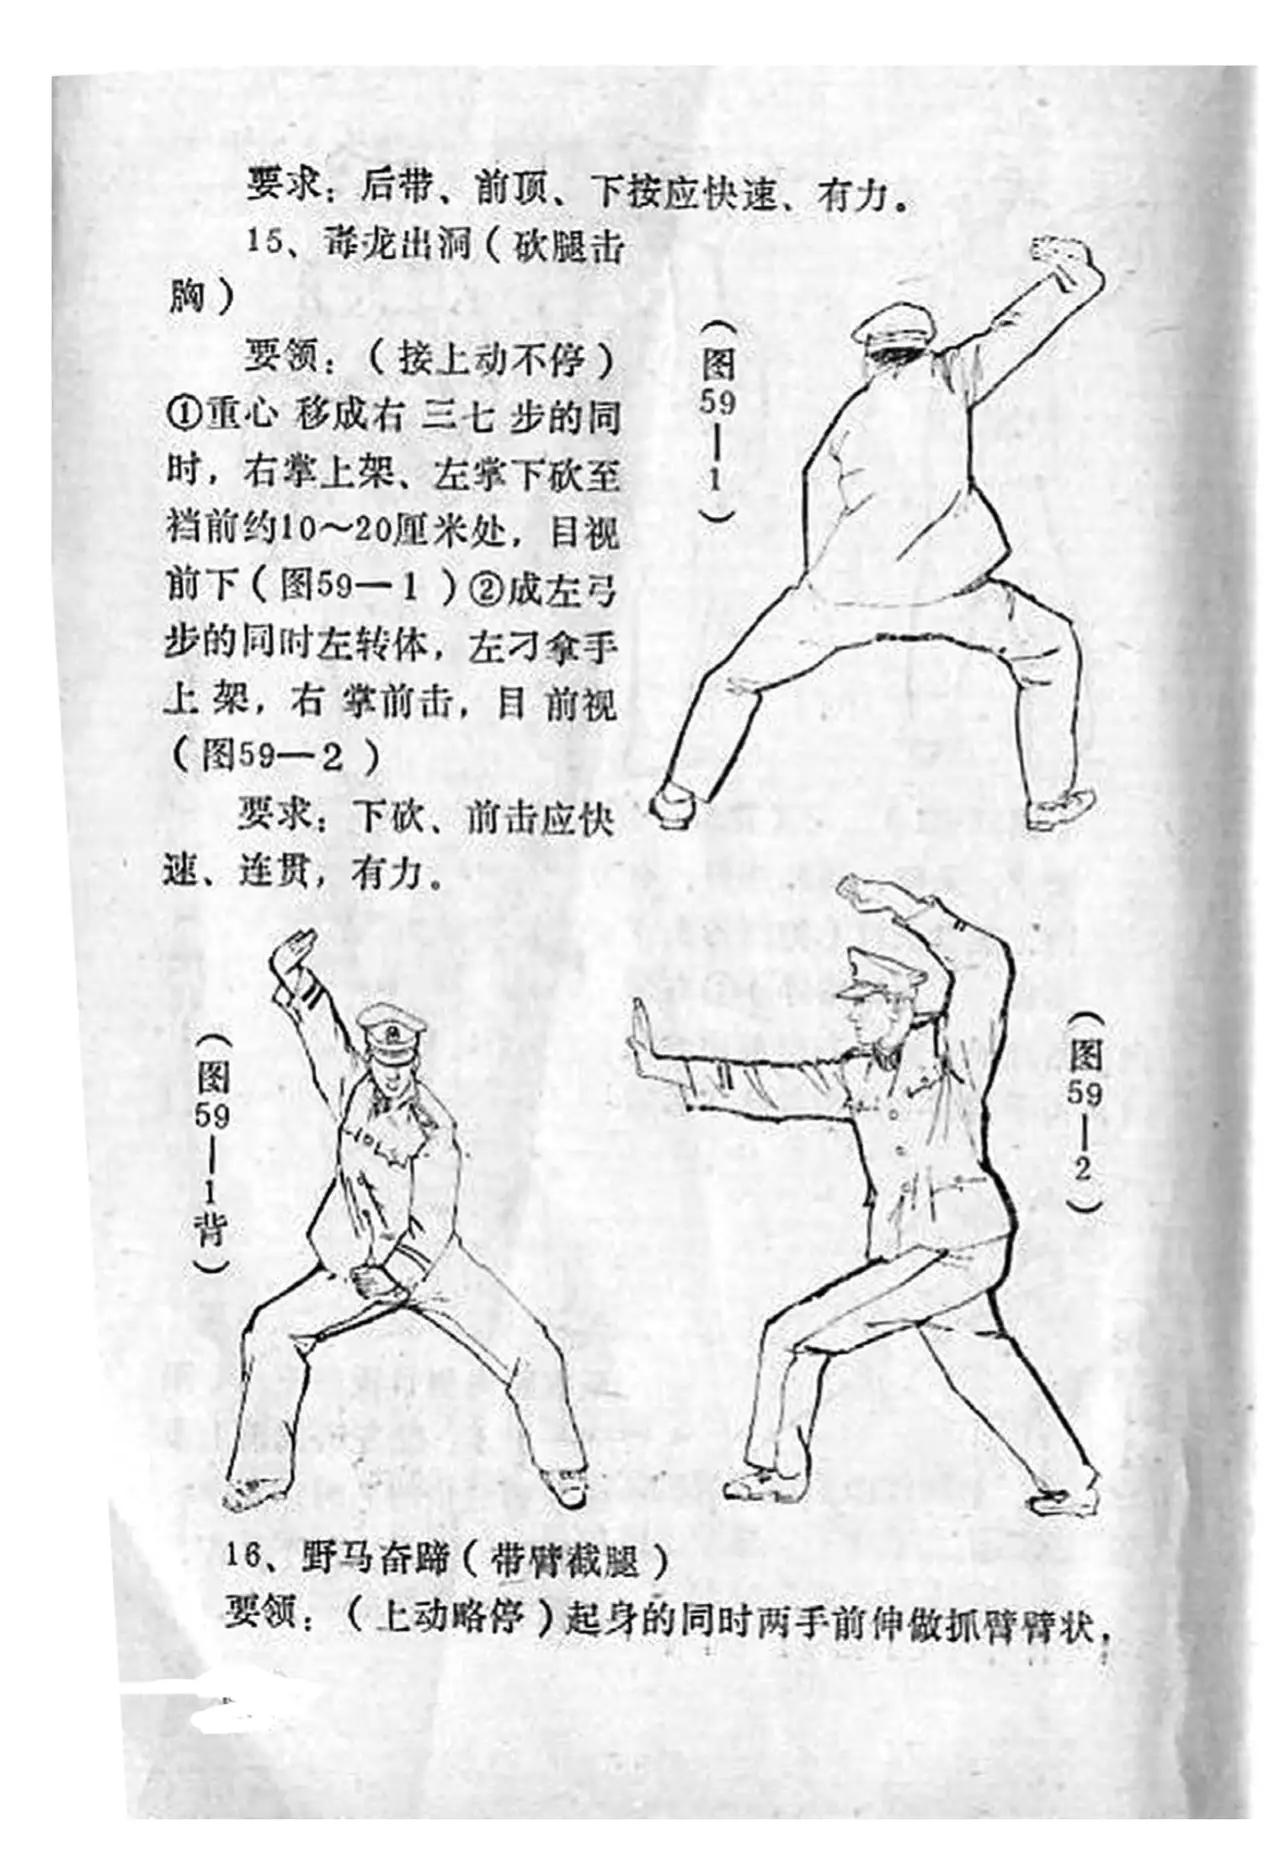 要求：后带、前顶、下按应快速、有力。
15、毒龙出洞（砍腿击
胸）
要领：（接上动不停）
①重心 移成右 三七 步的同
时，右掌上架、左掌下砍至
裆前约10～20厘米处，目视
前下（图59—1）②成左弓
步的同时左转体，左刁拿手
上 架，右 掌前击，目 前视
（图59—2）
要求：下砍、前击应快
速、连贯，有力。
（图59—1）
（图59—1背）
（图59—2）
16、野马奋蹄（带臂截腿）
要领：（上动略停）起身的同时两手前伸做抓臂臂状，